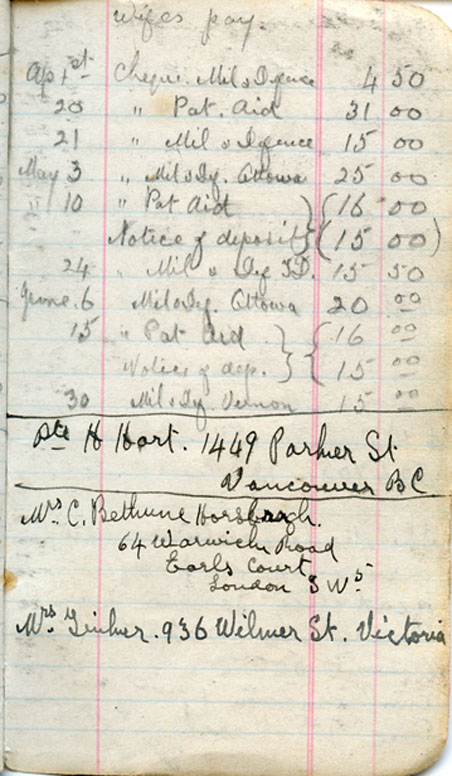 Wifes pay.
Ap 1st Cheque. Mil & Defence 4 50
20 " Pat. Aid 31 00
21 " Mil & Defence 15 00
May 3 " Mil & Def. Ottowa 25 00
" 10 " Pat Aid } { 16 00
Notice of deposit } ( 15 00 )
24 " Mil & Def 15 50
June. 6 Mil & Def. Ottowa 20 00
15 " Pat Aid } { 16 00
Notice of dep. } 15 00
30 Mil & Def. Vernon 15 00
Pte H Hart. 1449 Parker St
Vancouver BC
Mrs C. Bethune Horsbrugh.
64 Warwick Road
Earls Court
London SW5
Mrs. 936 Wilmer St. Victoria